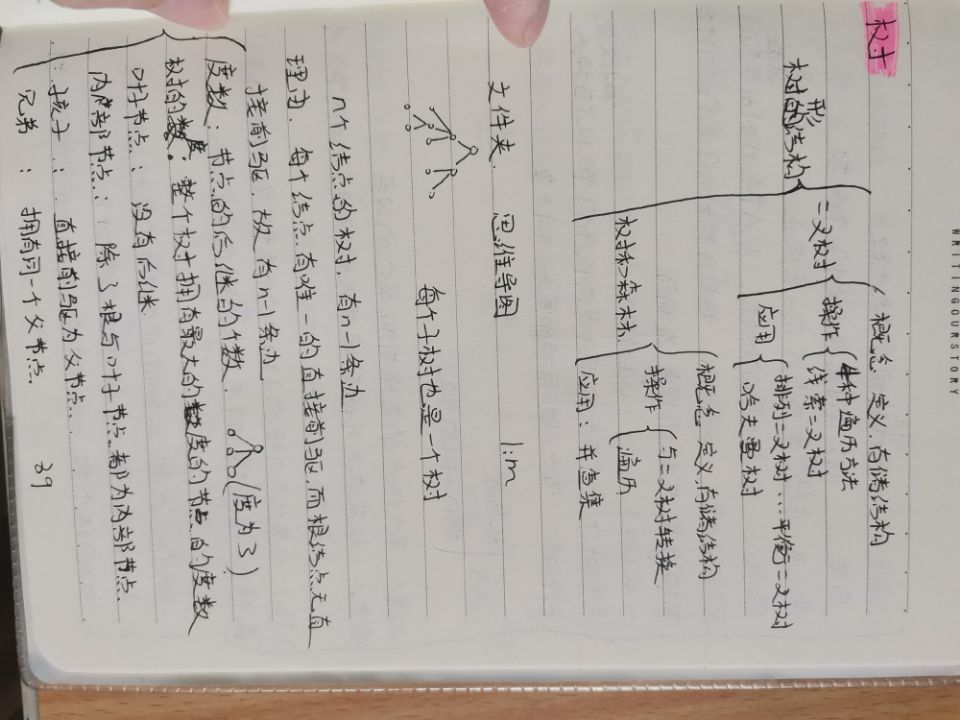 树
树形的结构
二叉树
概念 定义,存储结构
操作
4种遍历方法
线索二叉树
应用
排列二叉树…平衡二叉树
哈夫曼树
树和森林
概念 定义,存储结构
操作
与二叉树转换
遍历
应用:并查集
文件夹、思维导图 1:m
每个子树也是一个树
n个结点的树,有n-1条边
理由,每个结点有唯一的直接前驱,而根结点无直
接前驱,故有n-1条边
度数:节点的后继的个数,(度为3)
树的度:整个树拥有最大的度的节点的度数
叶子节点:没有后继
内部节点:除了根与叶子节点都为内部节点
孩子:直接前驱为父节点
兄弟:拥有同一个父节点.
39
WRITINGOURSTORY